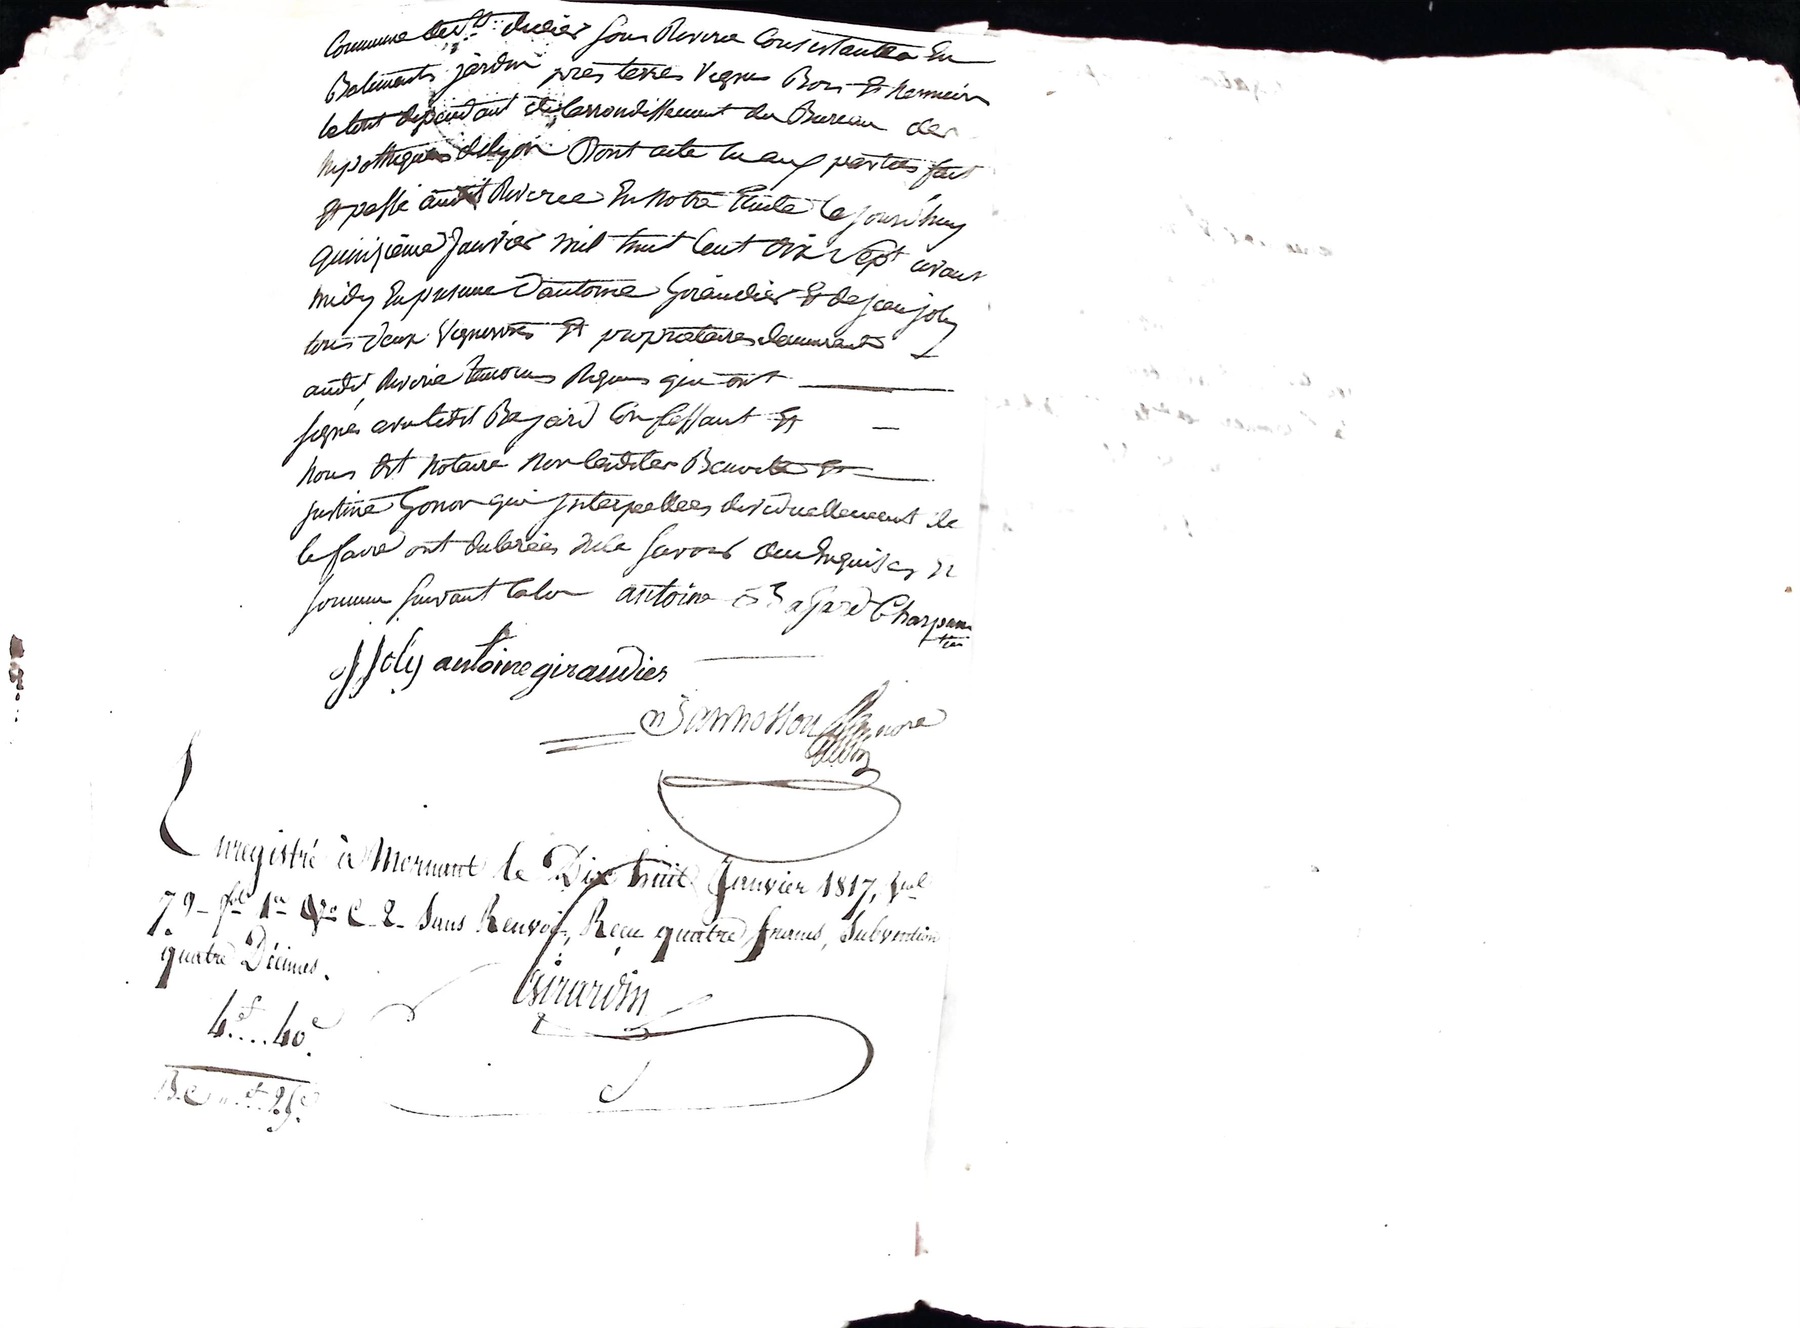 Commune de St didier sous Riverie Consistantes En
Batiments jardin prés terres Vignes Bois Et
le tout dependant de larrondissement du Bureau des
hypothèques de lyon Dont acte lu aux parties fait
Et passé audit Riverie En notre Etude Cejourdhuy
quinzième Janvier mil huit Cent dix Sept avant
midy En presence d'antoine Giraudier Et de jean joly
tous deux Vignerons Et propriétaires demeurants
audit Riverie temoins Requis qui ont
signés avec ledit Bajard Confessant Et
nous dit notaire non lesdites Benoite Et
justine Gonon qui interpellées individuellement de
le faire ont declarées ne le savoir Enquises Et
sommées suivant la loi antoine Bajard Charpan
tier
J Joly antoine giraudier
nore
Enregistré à Mornant le Dix huit Janvier 1817, vol
79 fol 1er Vo C. 2 Sans Renvoi, Reçu quatre francs, Subvention
quatre Décimes.
Girardin
4f....40c.